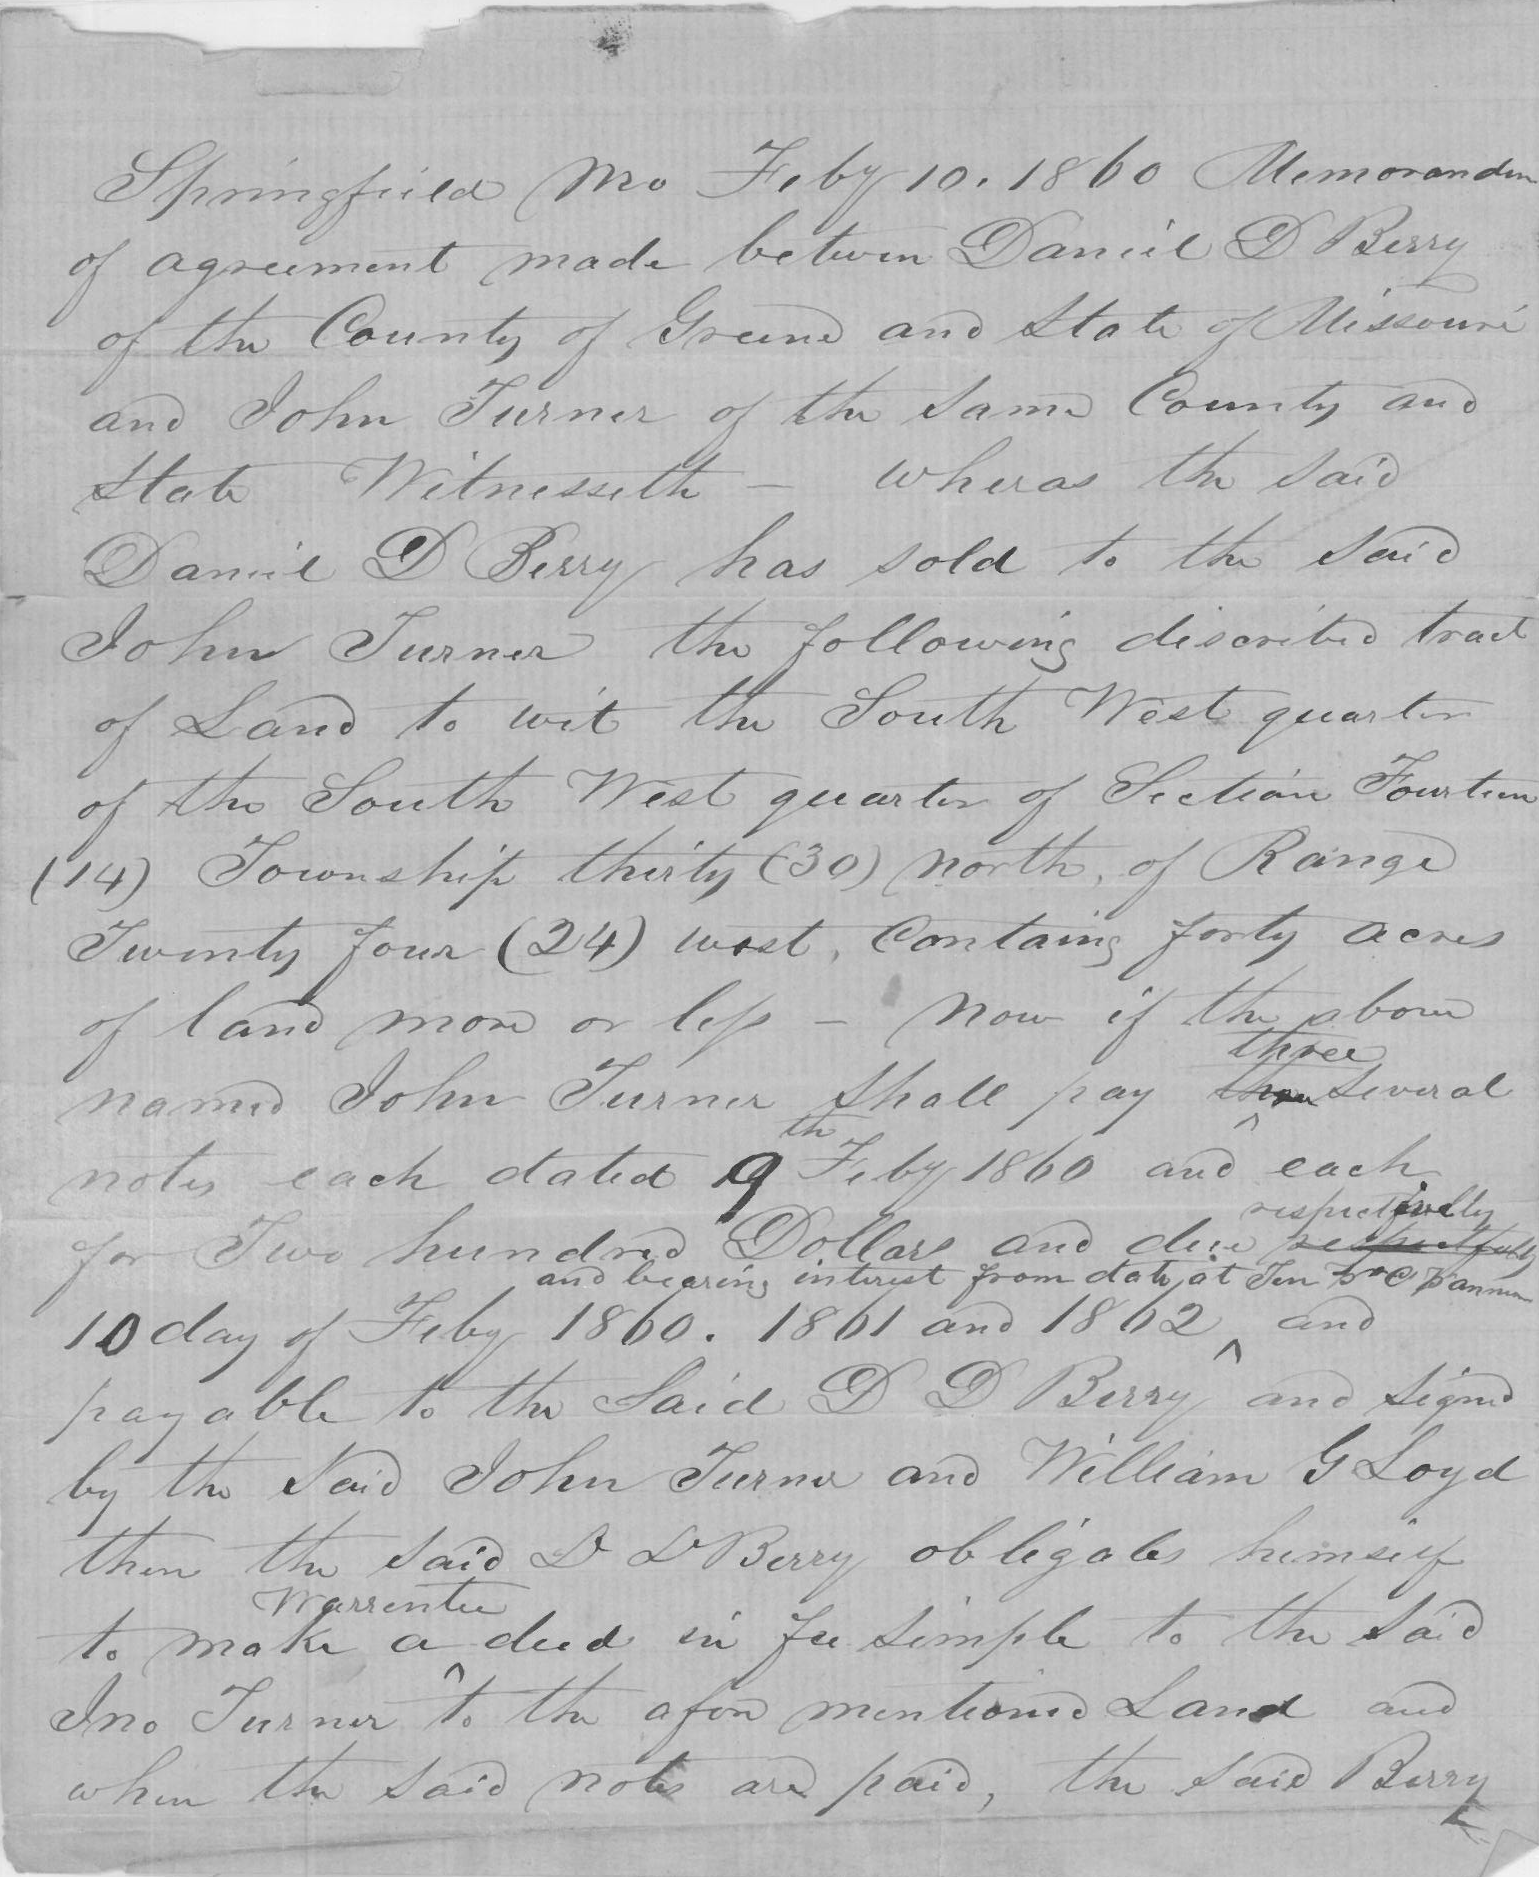 Springfield Mo Feby 10. 1860 Memorandum
of agreement made between Daniel D Berry
of the County of Greene and State of Missouri
and John Turner of the same County and
State Witnesseth — wheras the said
Daniel D Berry has sold to the said
John Turner the following discribed tract
of Land to wit the South West quarter
of the South West quarter of Section Fourteen
(14) Township thirty (30) north, of Range
Twenty four (24) west, Containg forty acres
of land more or less — now if the above
three
named John Turner shall pay several
th
notes each dated 9 Feby 1860 and each
respectively
for Two hundred Dollars and due respectfully
and bearing interest from date at Ten pr C pr annum
10 day of Feby 1860. 1861 and 1862 ^ and
payable to the said D D Berry and signed
by the said John Turner and William G Loyd
then the said D D Berry obligates himself
Warrentee
to make a deed in fee simple to the said
Jno Turner to the afore mentioned Land and
when the said notes are paid, the said Berry